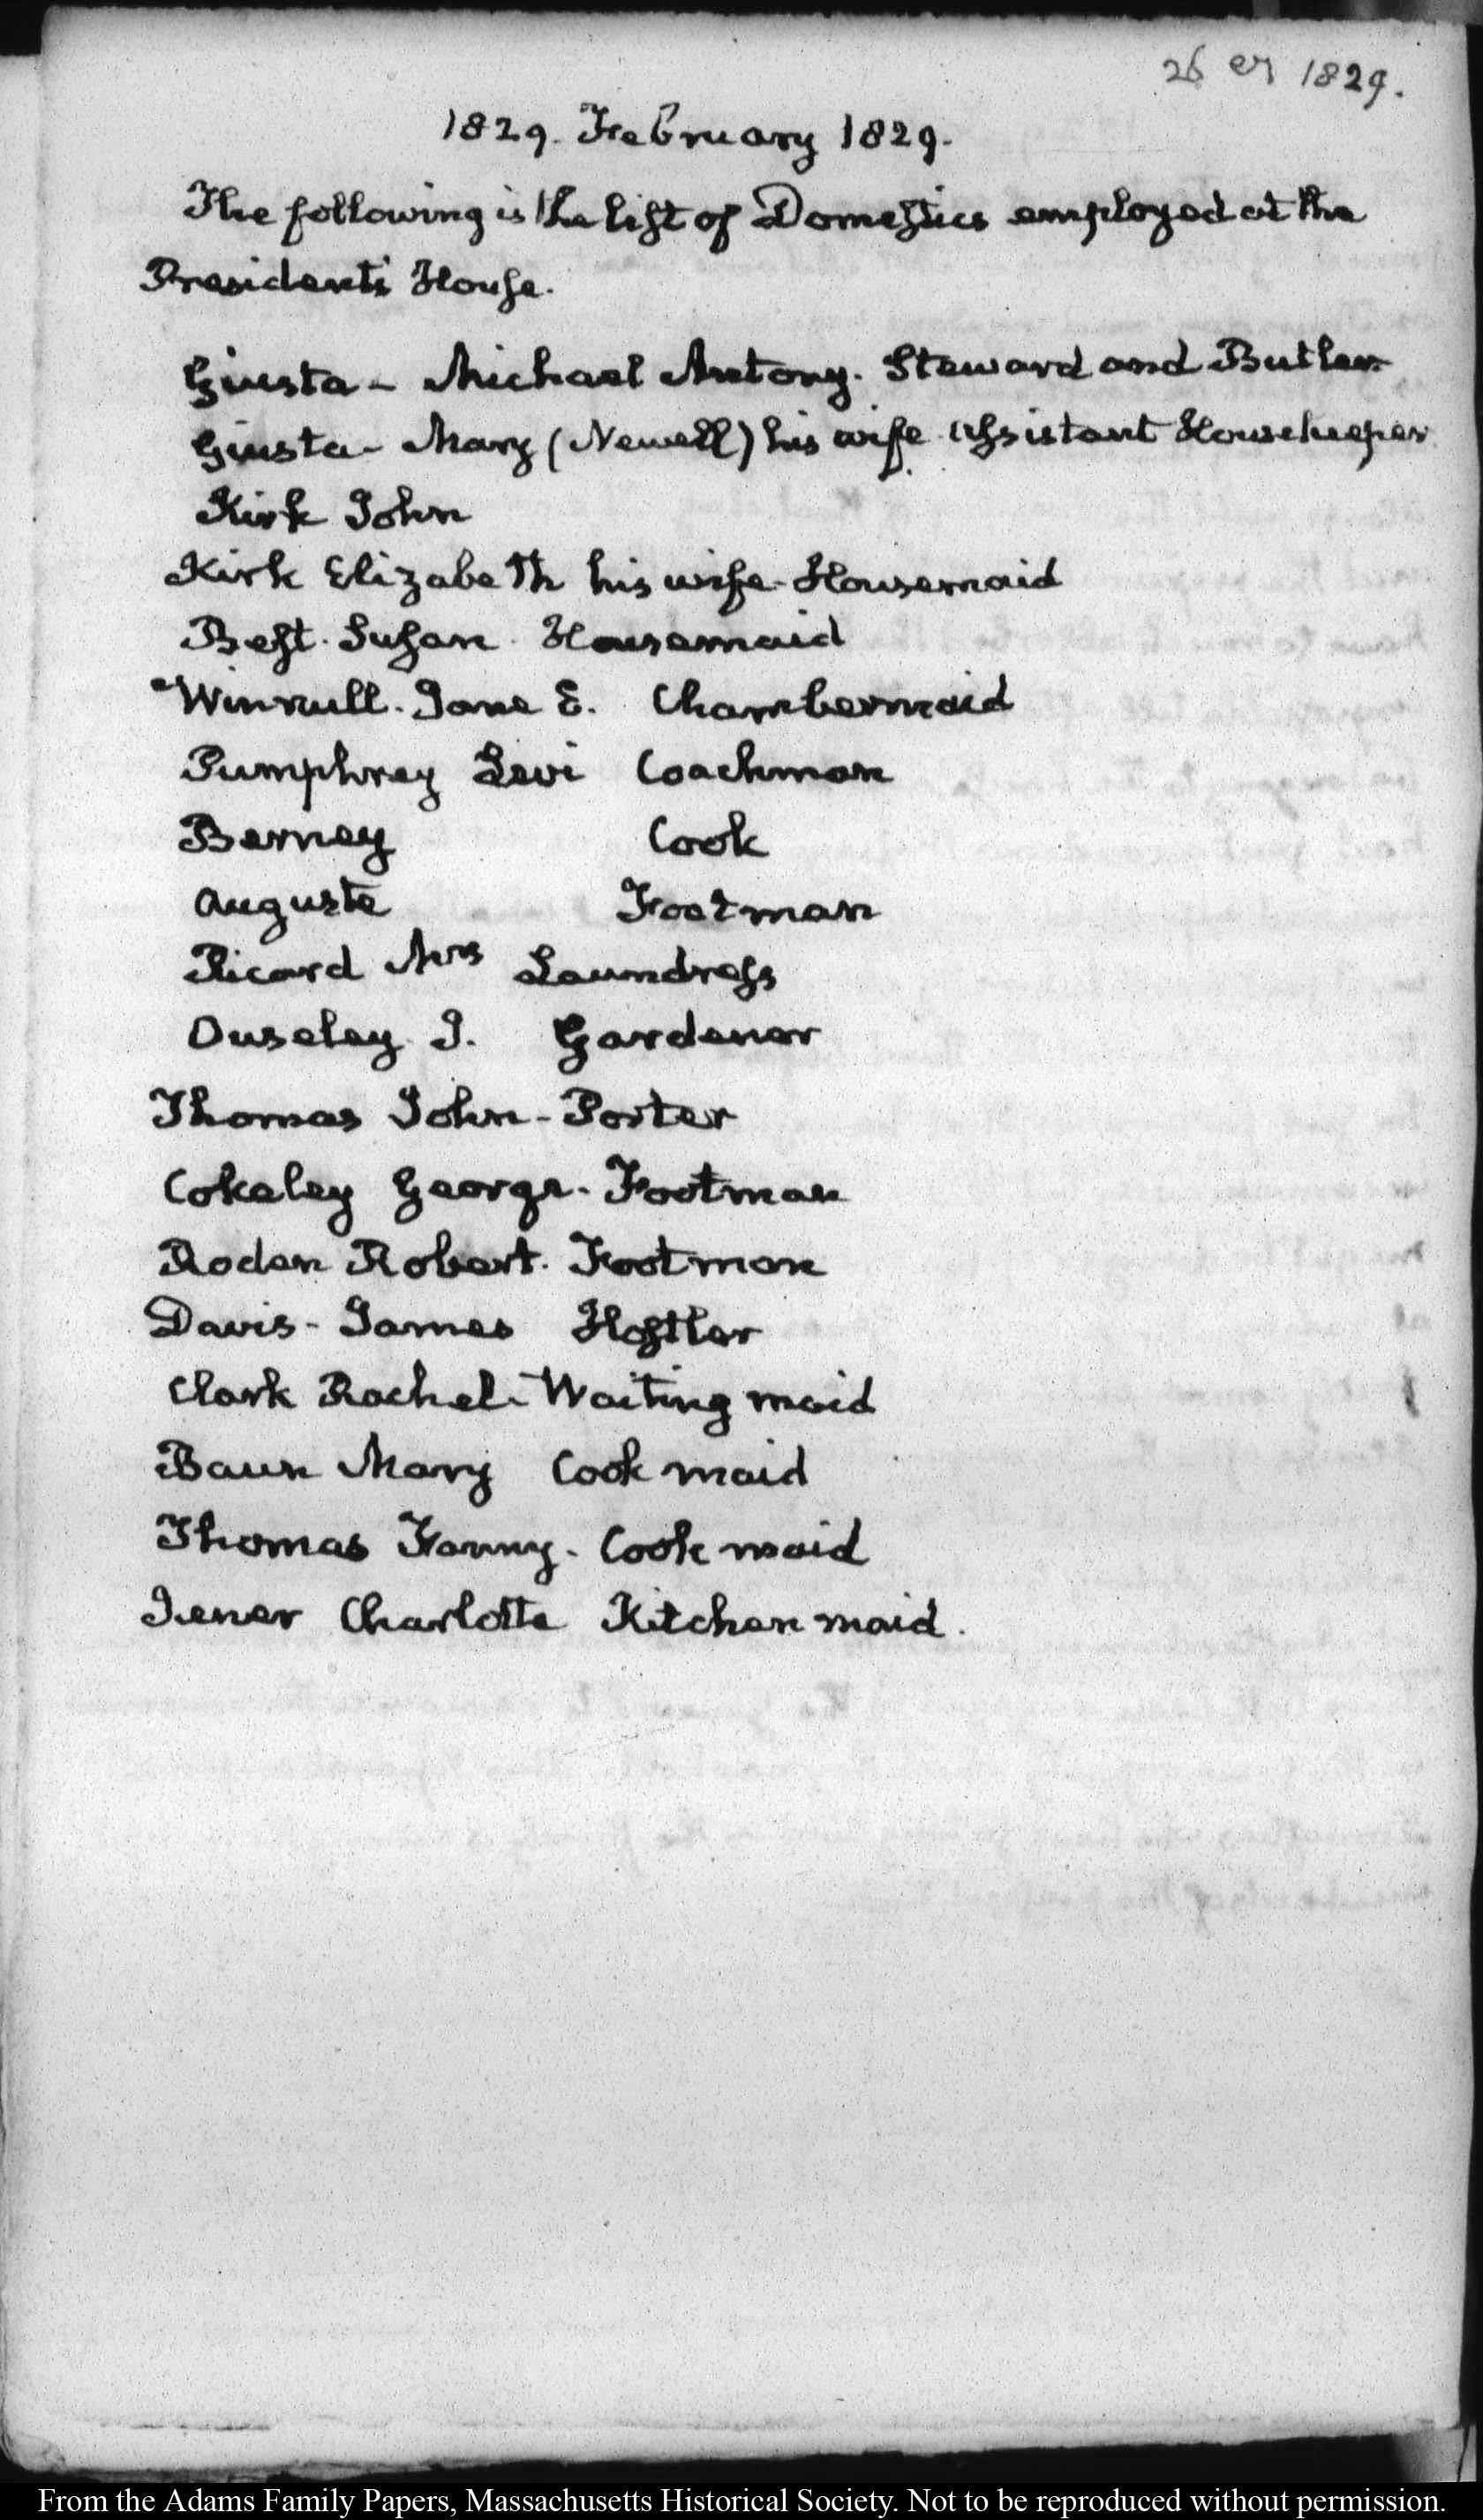 26 1829.
1829. February 1829.
The following is the list of Domestics employed at the
Presidents House.
Giusta - Michael Antony. Steward and Butler
Giusta - Mary (Newell) his wife Assistant Housekeeper
Kirk John
Kirk Elizabeth his wife - Housemaid
Best. Susan. Housemaid
Winnull. Jane E. Chambermaid
Pumphrey Levi Coachman
Berney Cook
Auguste Footman
Ricard Mrs Laundress
Ouseley J. Gardener
Thomas John - Porter
Cokeley George - Footman
Roden Robert. Footman
Davis - James Hostler
Clark Rachel - Waiting maid
Baun Mary Cook maid
Thomas Fanny. Cook maid
Jener Charlotte Kitchen maid.
From the Adams Family Papers, Massachusetts Historical Society. Not to be reproduced without permission.